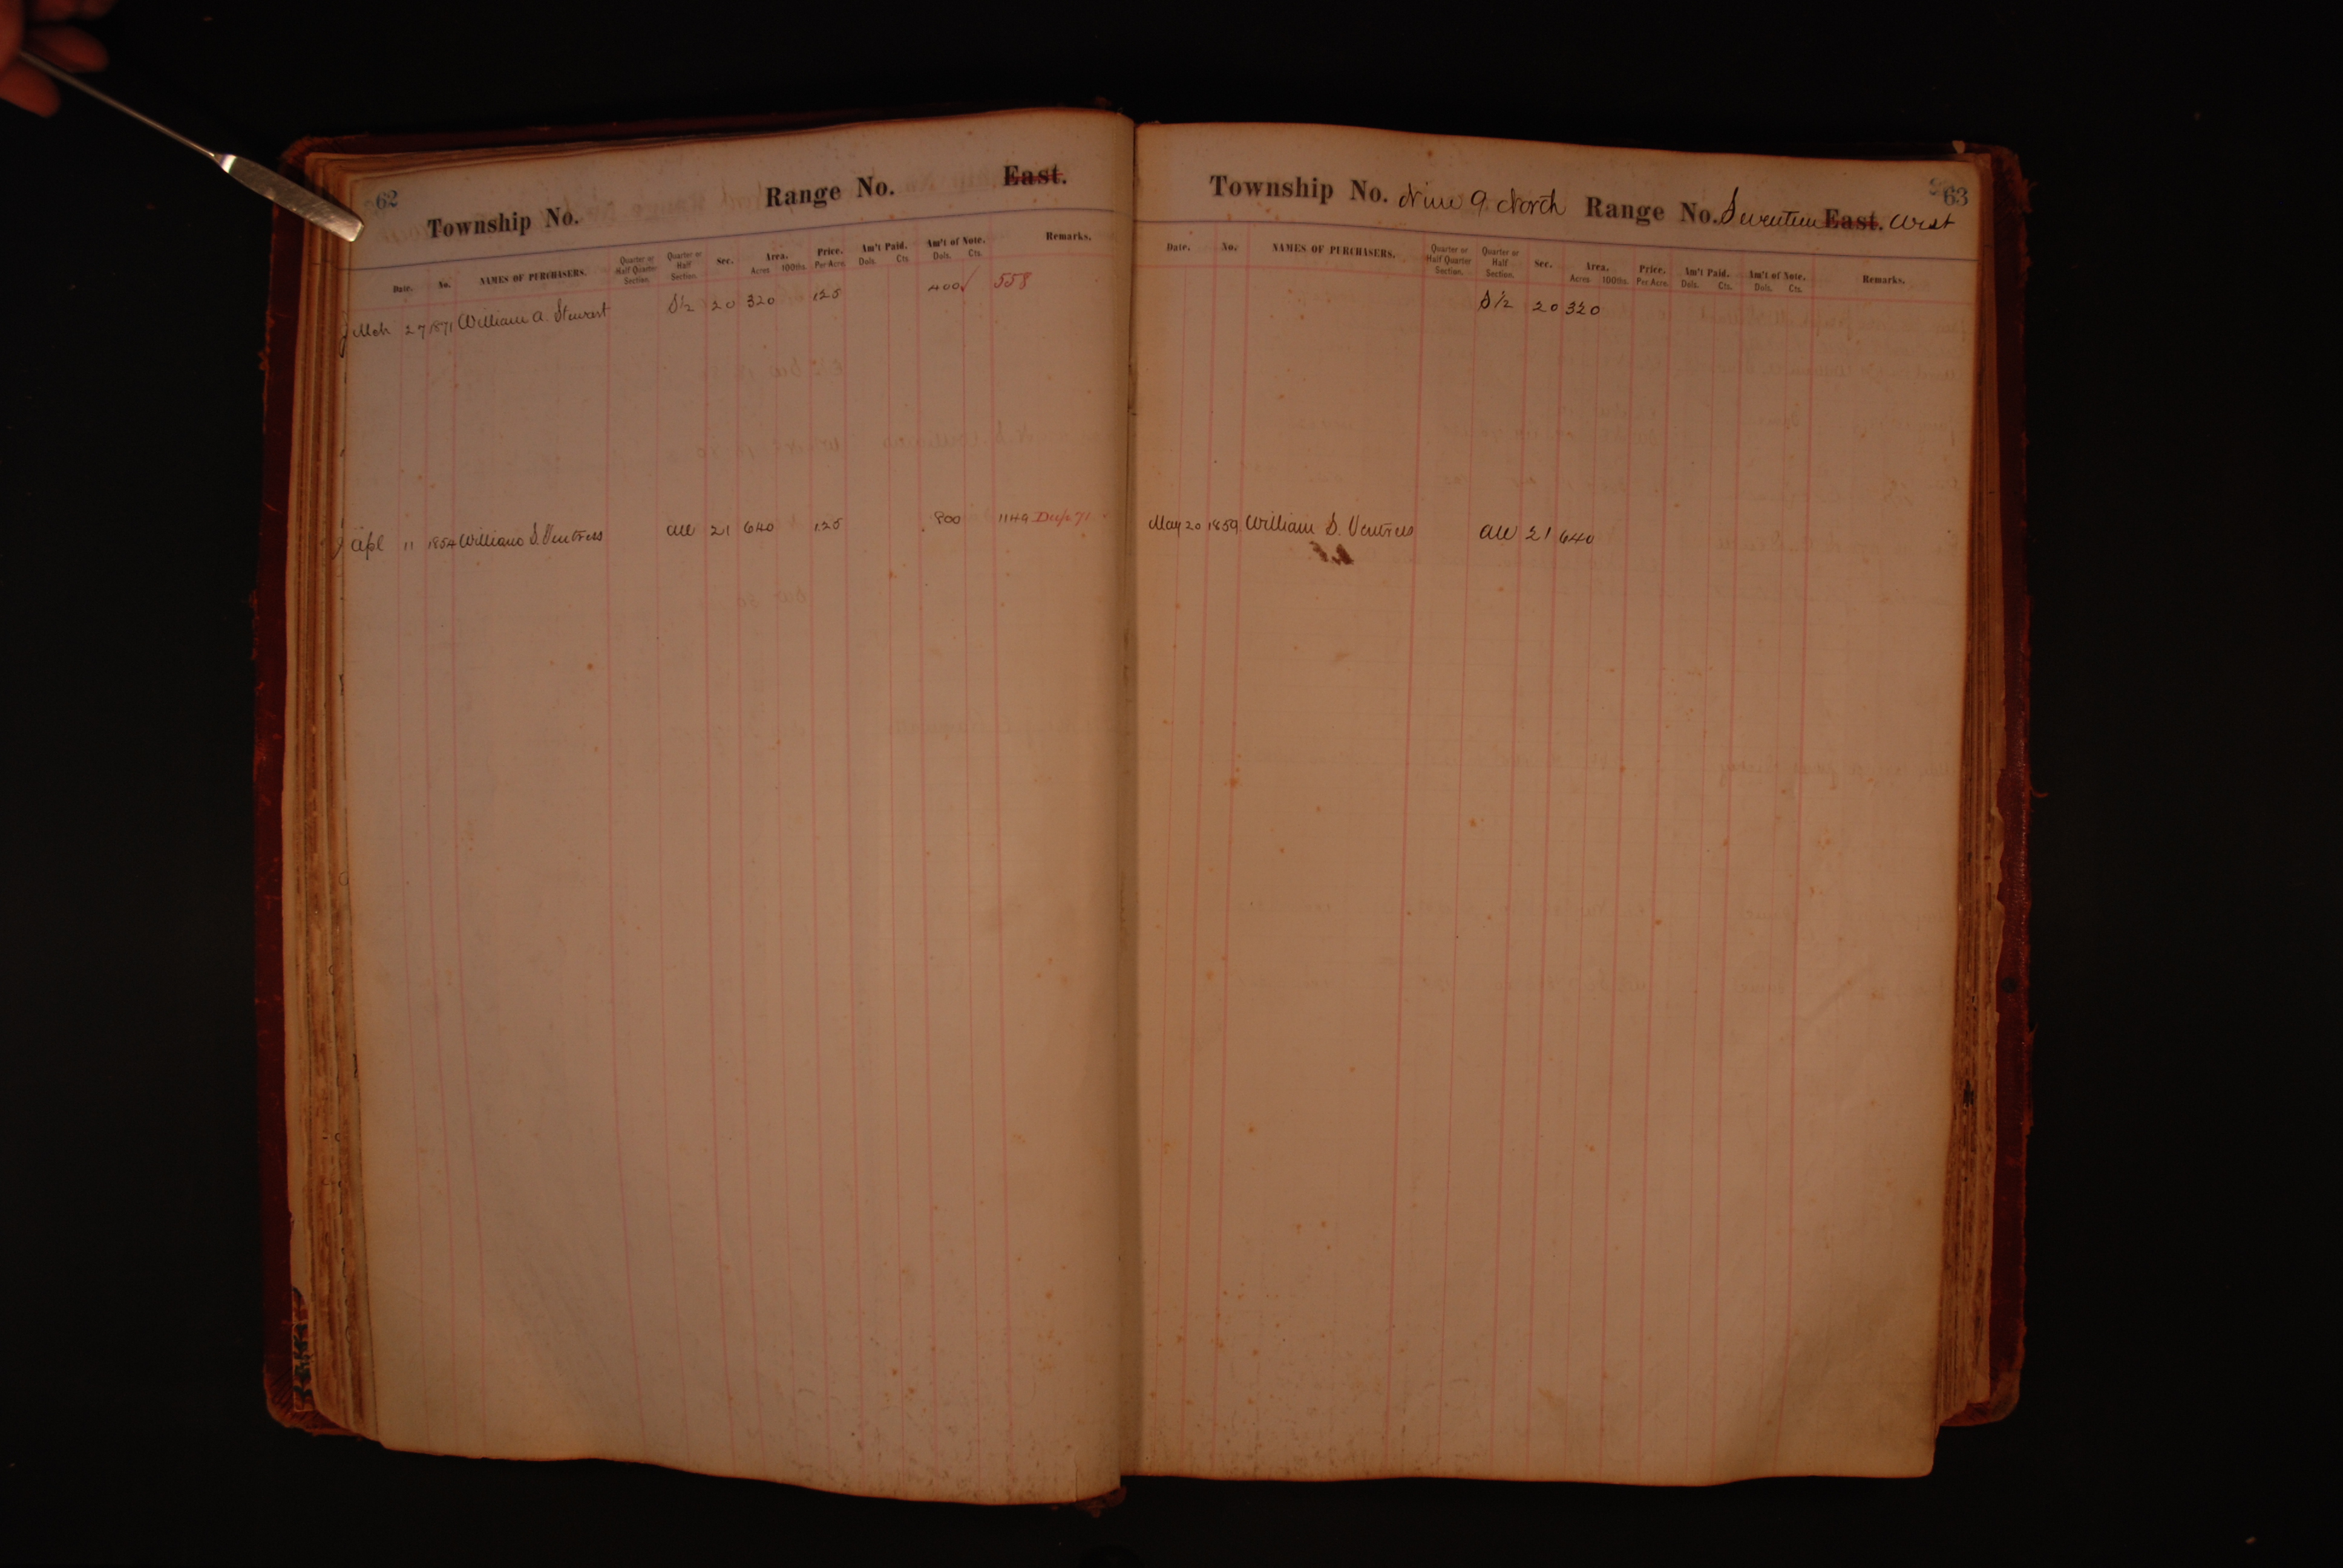 62
Township No. Range No. East.
Date. No. NAMES OF PURCHASERS. Quarter or Half Quarter Section. Quarter or Half Section. Sec. Area. Acres 100ths. Price. Per Acre. Am't Paid. Dols. Cts. Am't of Note. Dols. Cts. Remarks.
Mch 27 1871 William A. Stewart S½ 20 320 1.25 400 558
Apl 11 1854 William S. Ventress All 21 640 1.25 800 1149 Dup 71
63
Township No. Nine 9 North Range No. Seventeen East. West
Date. No. NAMES OF PURCHASERS. Quarter or Half Quarter Section. Quarter or Half Section. Sec. Area. Acres 100ths. Price. Per Acre. Am't Paid. Dols. Cts. Am't of Note. Dols. Cts. Remarks.
S½ 20 320
May 20 1859 William S. Ventress All 21 640